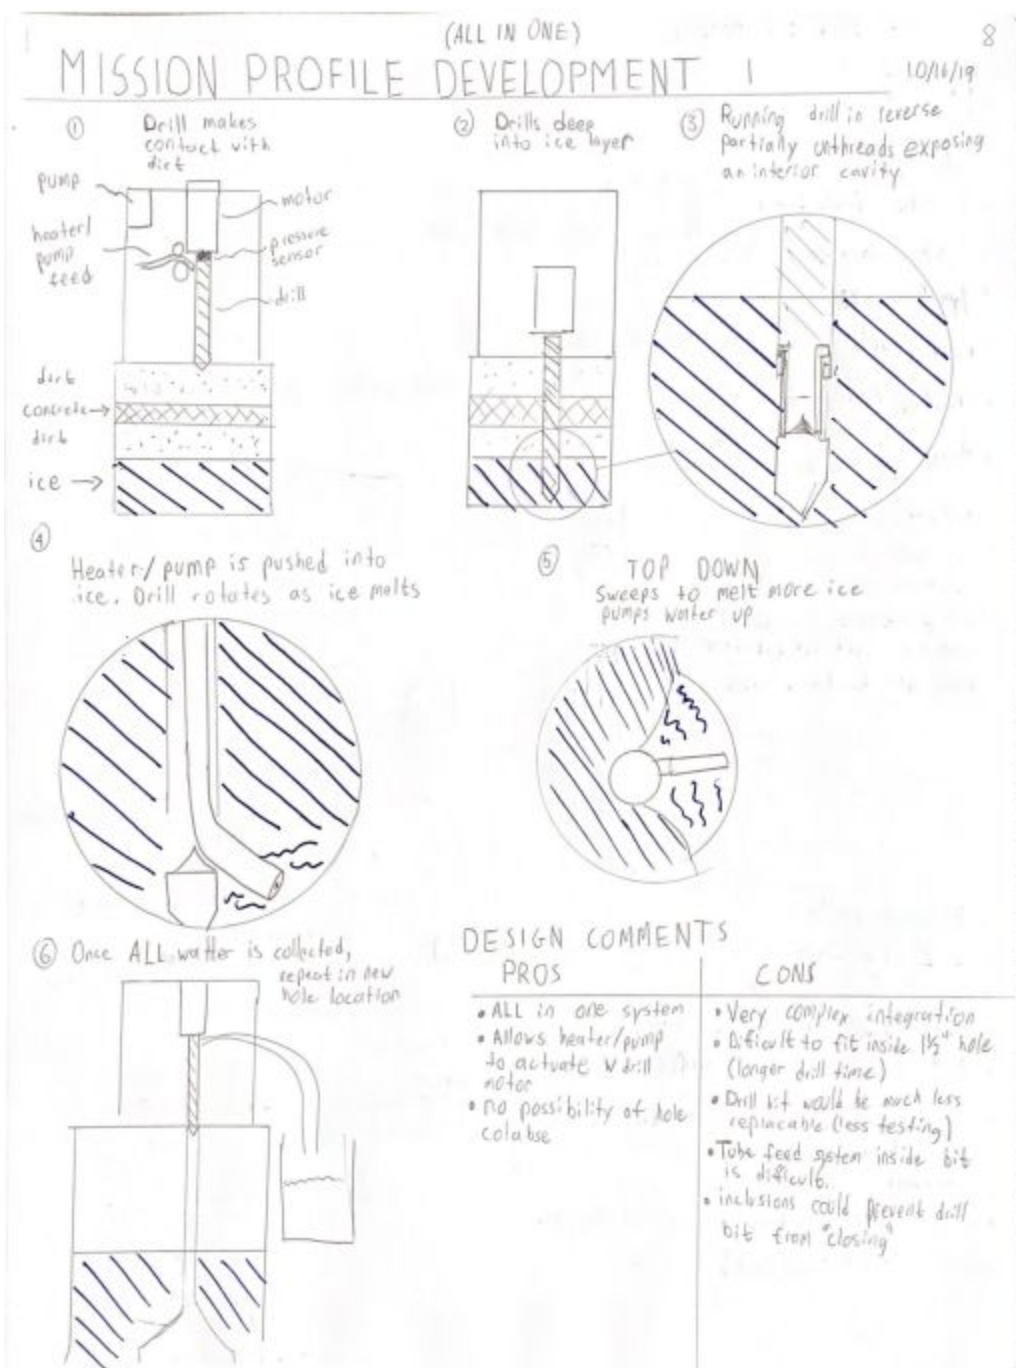 (ALL IN ONE)
8
MISSION PROFILE DEVELOPMENT 1
10/16/19
① Drill makes
contact with
dirt
pump
heater/
pump
feed
motor
pressure
sensor
drill
dirt
concrete→
dirt
ice →
② Drills deep
into ice layer
③ Running drill in reverse
partially unthreads exposing
an interior cavity
④
Heater/pump is pushed into
ice. Drill rotates as ice melts
⑤
TOP DOWN
Sweeps to melt more ice
pumps water up
⑥ Once ALL watter is collected,
repeat in new
hole location
DESIGN COMMENTS
PROS
• ALL in one system
• Allows heater/pump
to actuate w drill
motor
• no possibility of hole
colabse
CONS
• Very complex integration
• Dificult to fit inside 1½" hole
(longer drill time)
• Drill bit would be much less
replacable (less testing)
• Tube feed system inside bit
is difficult.
• inclusions could prevent drill
bit from "closing"